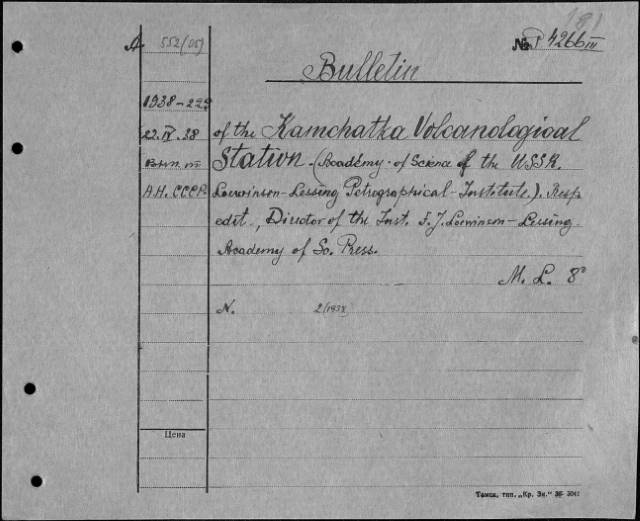 (8)
А 552/05) № P 4266 III
Bulletin
1938-229
22.IX.38 of the Kamchatka Volcanological
Station. (Academy of Science of the USSR.
А.Н. СССР Loewinson-Lessing Petrographical Institute.). Resp.
edit., Director of the Inst. F. J. Loewinson-Lessing.
Academy of Sc. Press.
M. L. 8°
N. 2/1938
Цена
Тамск. тип. „Кр. Зн." 36 3041